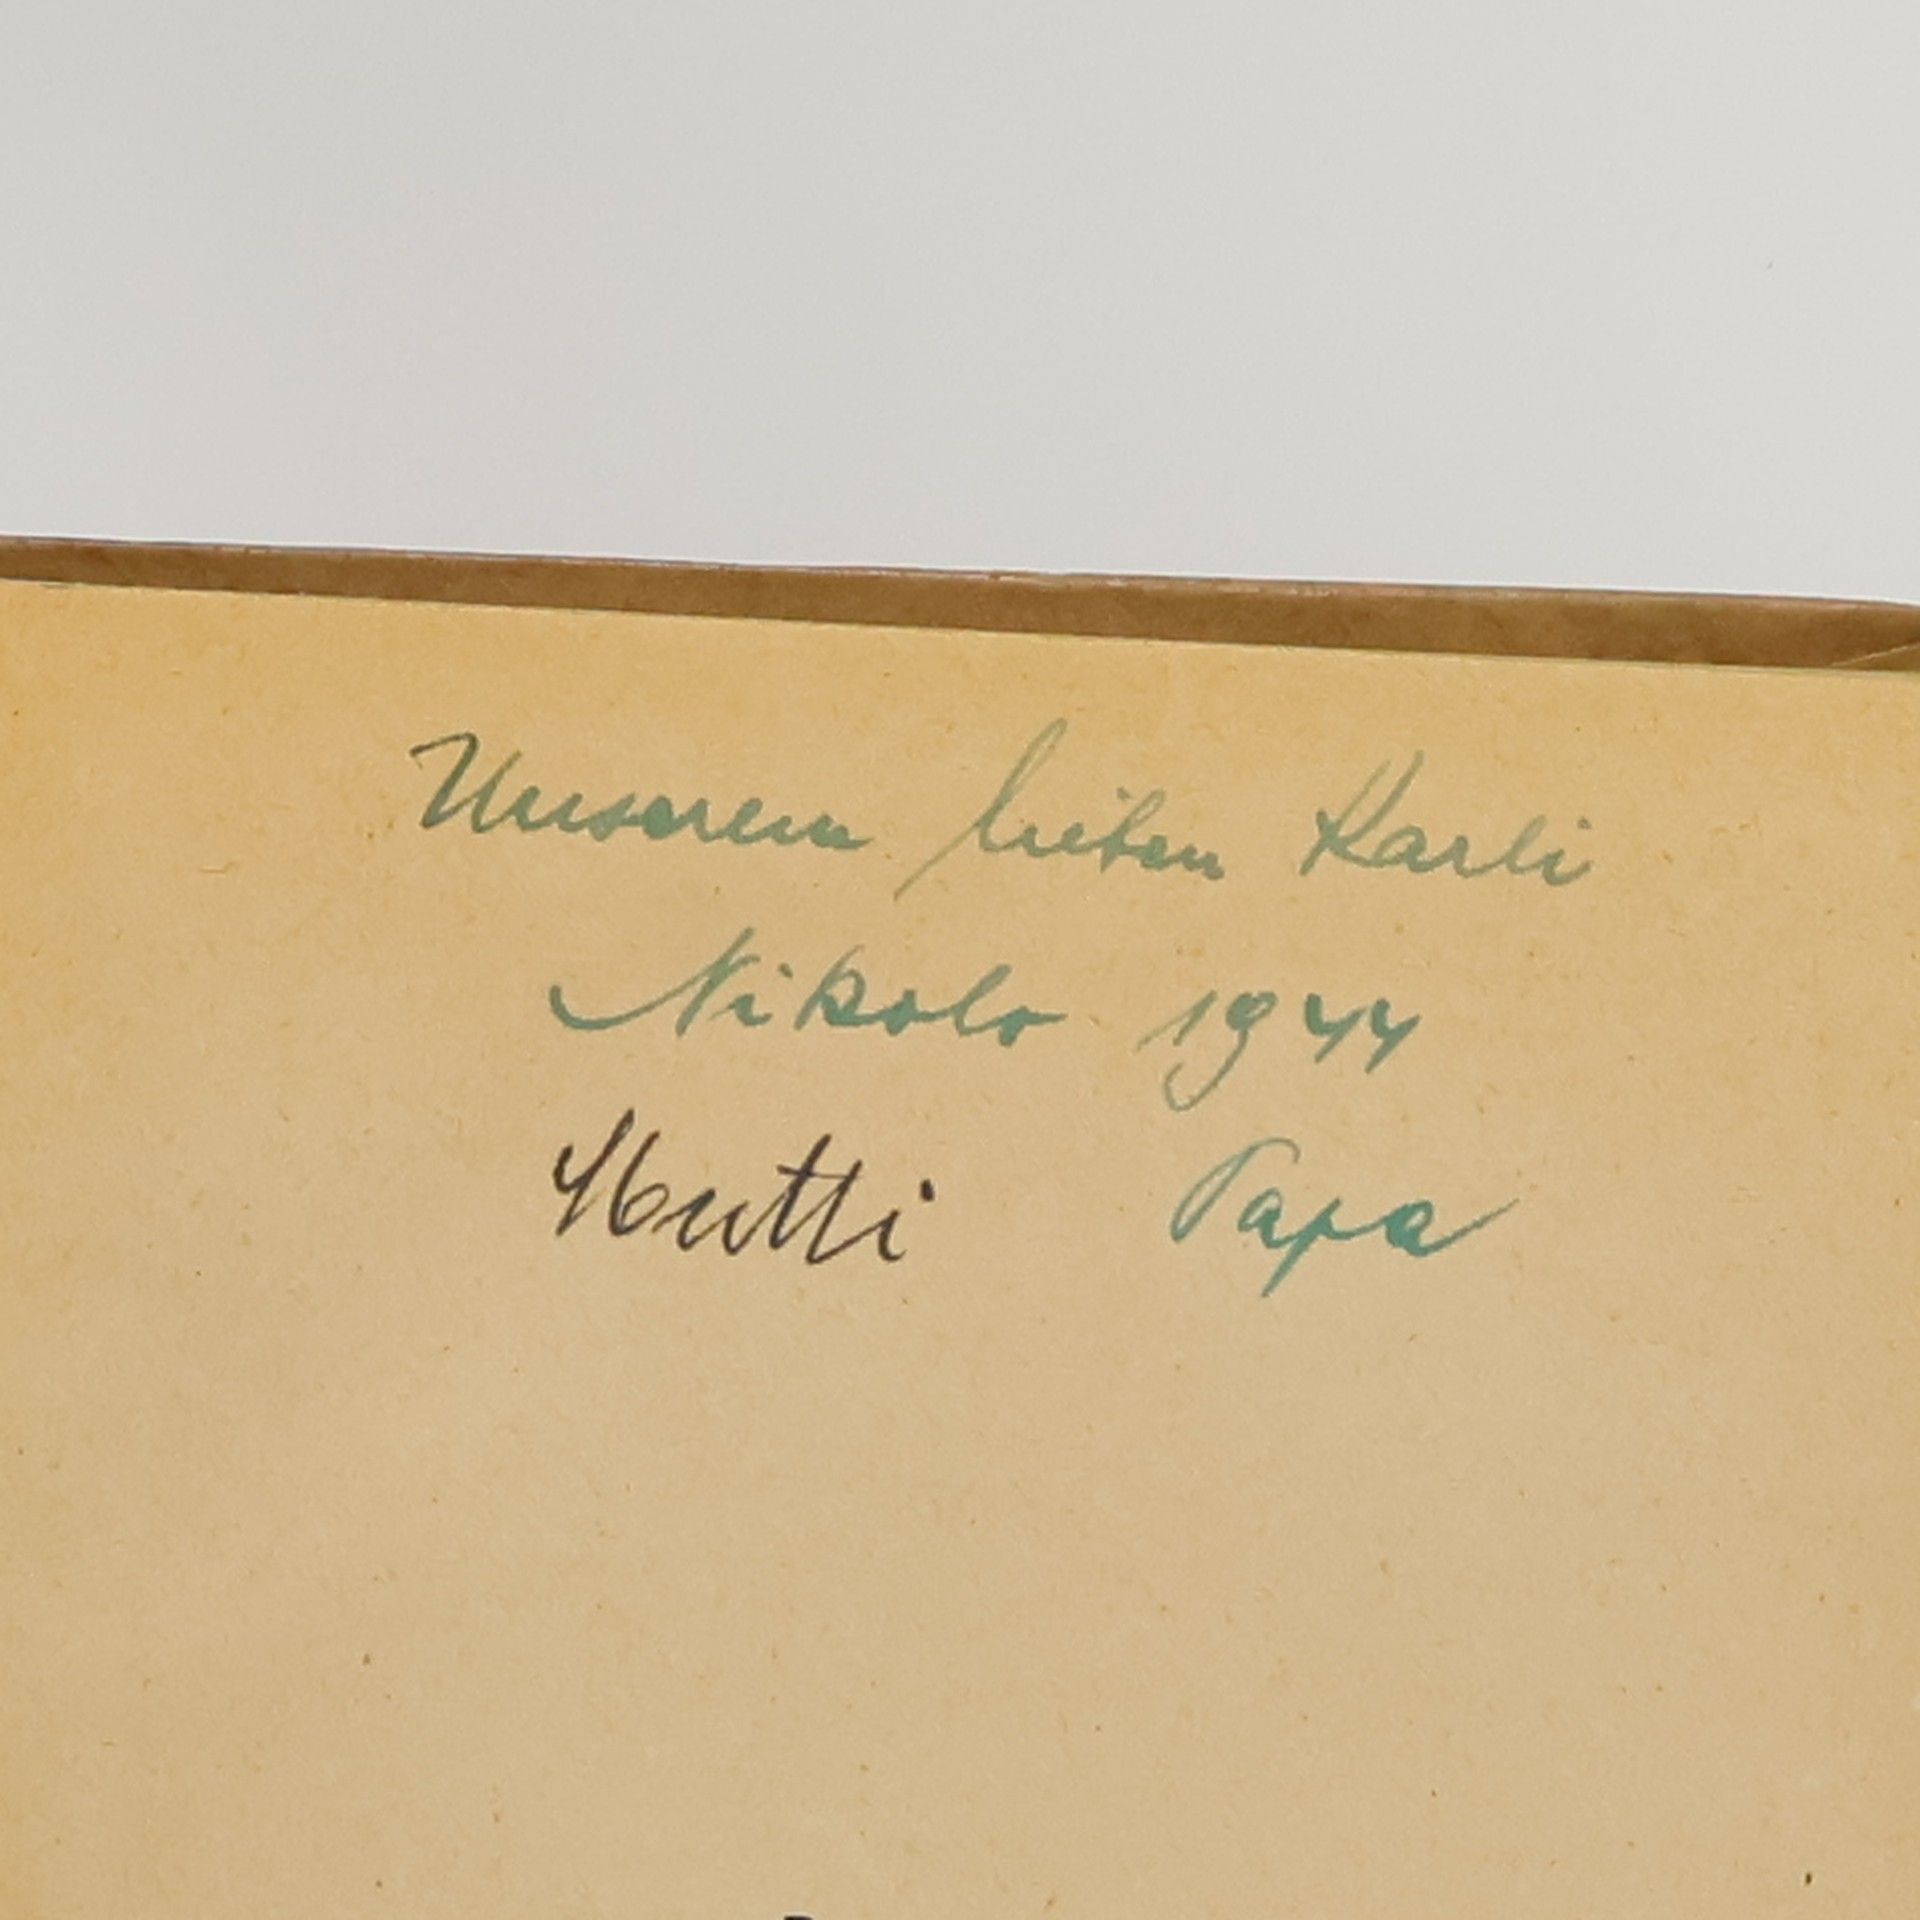 Unserem lieben Karli
Nikolo 1944
Mutti Papa